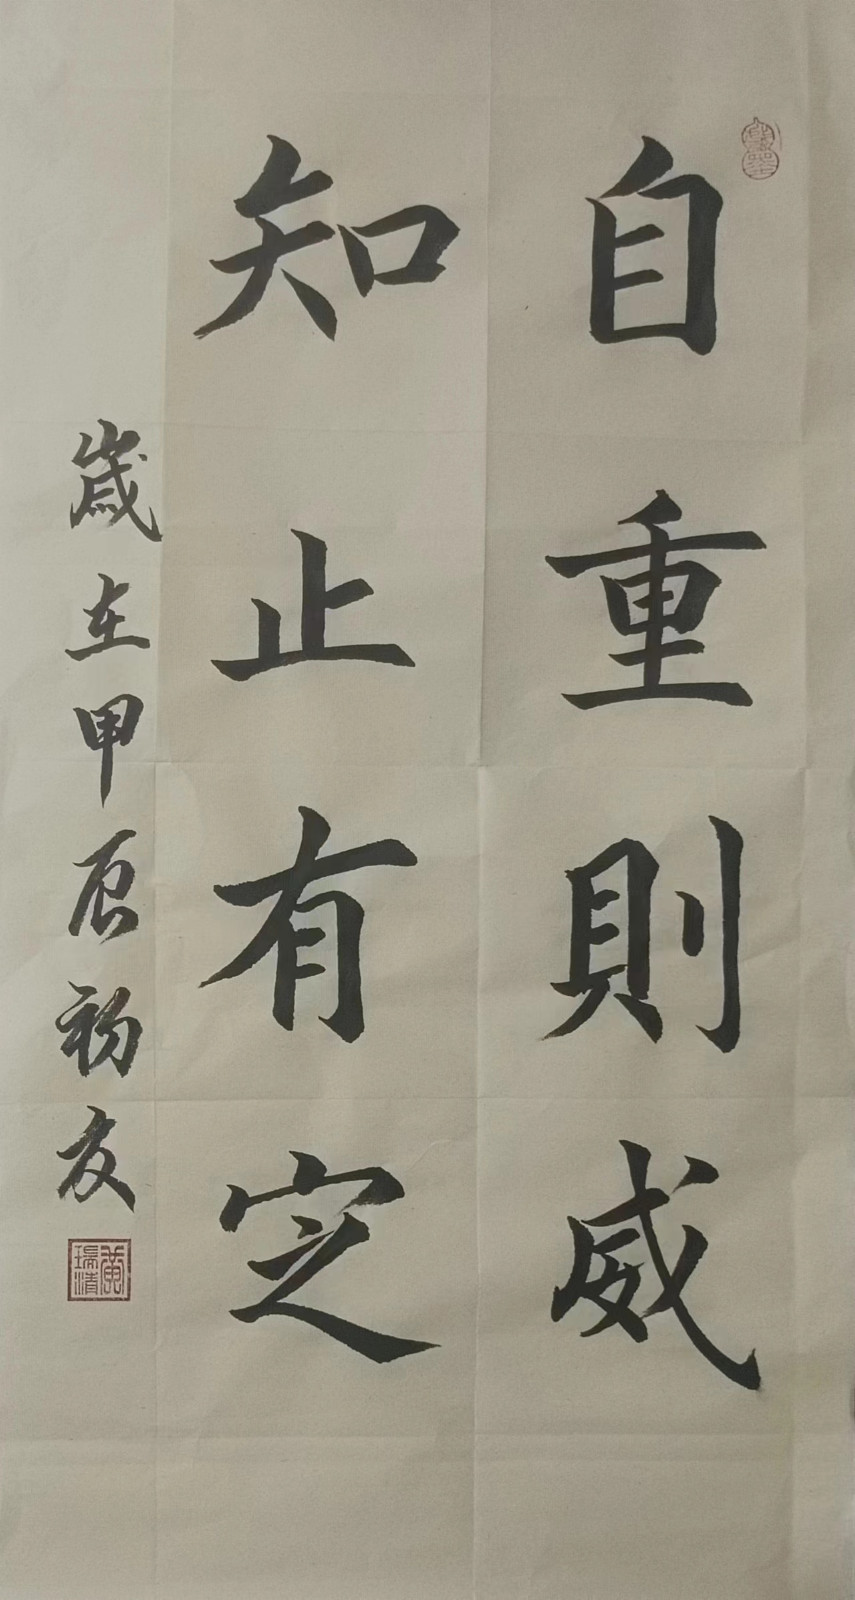 自重則威
知止有定
歲在甲辰初夏
黃瑞清